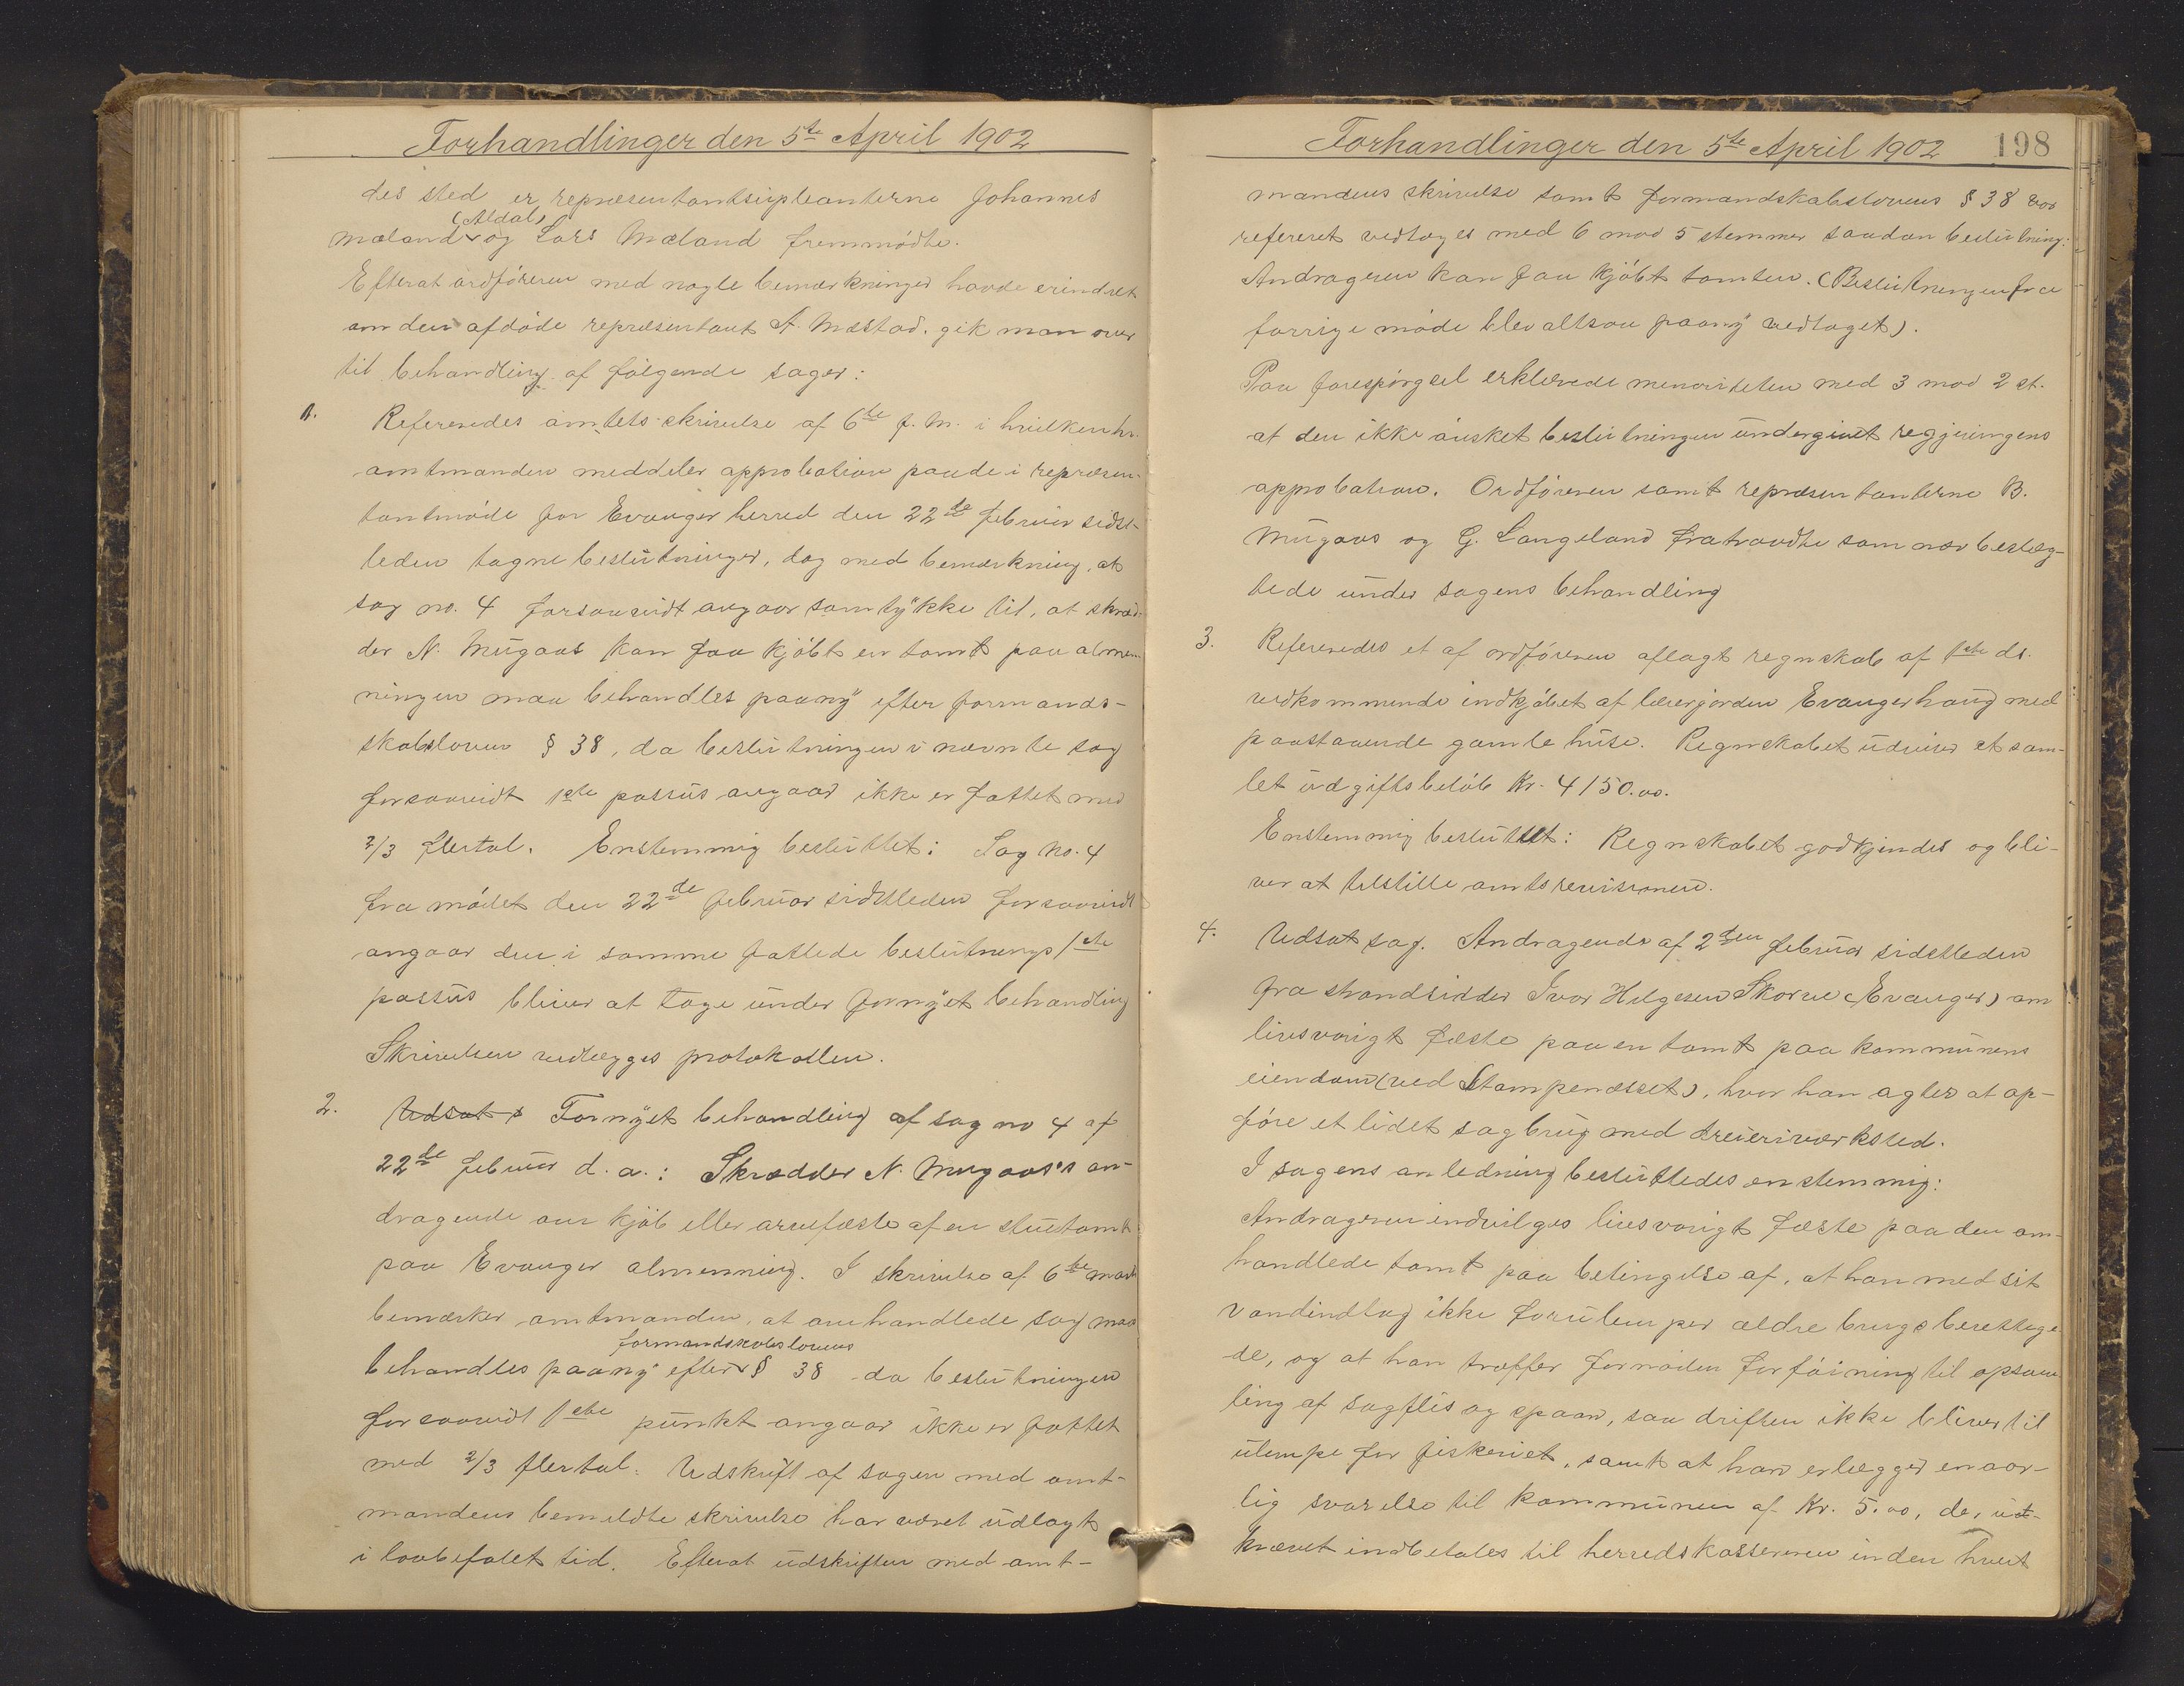 Forhandlinger den 5te April 1902
des sted er repræsentantsupleanterne Johannes
(Aldal)
Mæland og Lars Mæland fremmødte.
Efterat ordføreren med nogle bemærkninger havde erindret
om den afdøde repræsentant A. Mæstad, gik man over
til behandling af følgende sager:
1. Refereredes amtets skrivelse af 6te f. M. i hvilken hr.
amtmanden meddeler approbation paa de i repræsen-
tantmøde for Evanger herred den 22de februar sidst-
leden tagne beslutninger, dog med bemærkning, at
sag no. 4 forsaavidt angaar samtykke til, at skræd-
der N. Mugaas kan faa kjøbt en tomt paa almen-
ningen maa behandles paany efter formands-
skabsloven § 38, da beslutningen i nævnte sag
forsaavidt 1ste passus angaar ikke er fattet med
2/3 flertal. Enstemmig besluttet: Sag No. 4
fra mødet den 22de februar sidstleden forsaavidt
angaar den i samme fattede beslutnings 1ste
passus bliver at tage under fornyet behandling
Skrivelsen vedlægges protokollen.
2. Udsat s Fornyet behandling af sag no 4 af
22de februar d. a.: Skrædder N. Mugaas's an-
dragende om kjøb eller arvefæste af en stuetomt
paa Evanger almenning. I skrivelse af 6te marts
bemærker amtmanden, at omhandlede sag maa
formandskabslovens
behandles paany efter § 38 da beslutningen
forsaavidt 1ste punkt angaar ikke er fattet
med 2/3 flertal. Udskrift af sagen med amt-
mandens bemeldte skrivelse har været udlagt
i lovbefalet tid. Efterat udskriften med amt-
Forhandlinger den 5te April 1902 198
mandens skrivelse samt formandskabslovens § 38 var
refereret vedtoges med 6 mod 5 stemmer saadan beslutning:
Andrageren kan faa kjøbt tomten. (Beslutningen fra
forrige møde blev altsaa paany vedtaget).
Paa forespørgsel erklærede minoriteten med 3 mod 2 st.
at den ikke ønsket beslutningen undergivet regjeringens
approbation. Ordføreren samt repræsentanterne B.
Mugaas og G. Langeland fratraadte som nær beslæg-
tede under sagens behandling
3. Refereredes et af ordføreren aflagt regnskab af 1ste ds.
vedkommende indkjøbet af lærergården Evangerhaug med
paastaaende gamle huse. Regnskabet udviser et sam-
let udgiftsbeløb Kr. 4150.00.
Enstemmig besluttet: Regnskabet godkjendes og bli-
ver at tilstille amtsrevisionen.
4. Udsat sag. Andragende af 2den februar sidstleden
fra strandsidder Ivar Helgesen Skorve (Evanger) om
livsvarigt fæste paa en tomt paa kommunens
eiendom (ved Stampenæsset), hvor han agter at op-
føre et lidet sagbrug med dreieriværksted.
I sagens anledning besluttedes enstemmig:
Andrageren indvilges livsvarigt fæste paa den om-
handlede tomt paa betingelse af, at han med sit
vandindtag ikke forulemper ældre brugsberettige-
de, og at han træffer fornøden forføining til opsam-
ling af sagflis og spaan, saa driften ikke bliver til
ulempe for fiskeriet, samt at han erlægger en aar-
lig svarelse til kommunen af Kr. 5.00, de, ud-
krævet indbetales til herredskassereren inden hvert